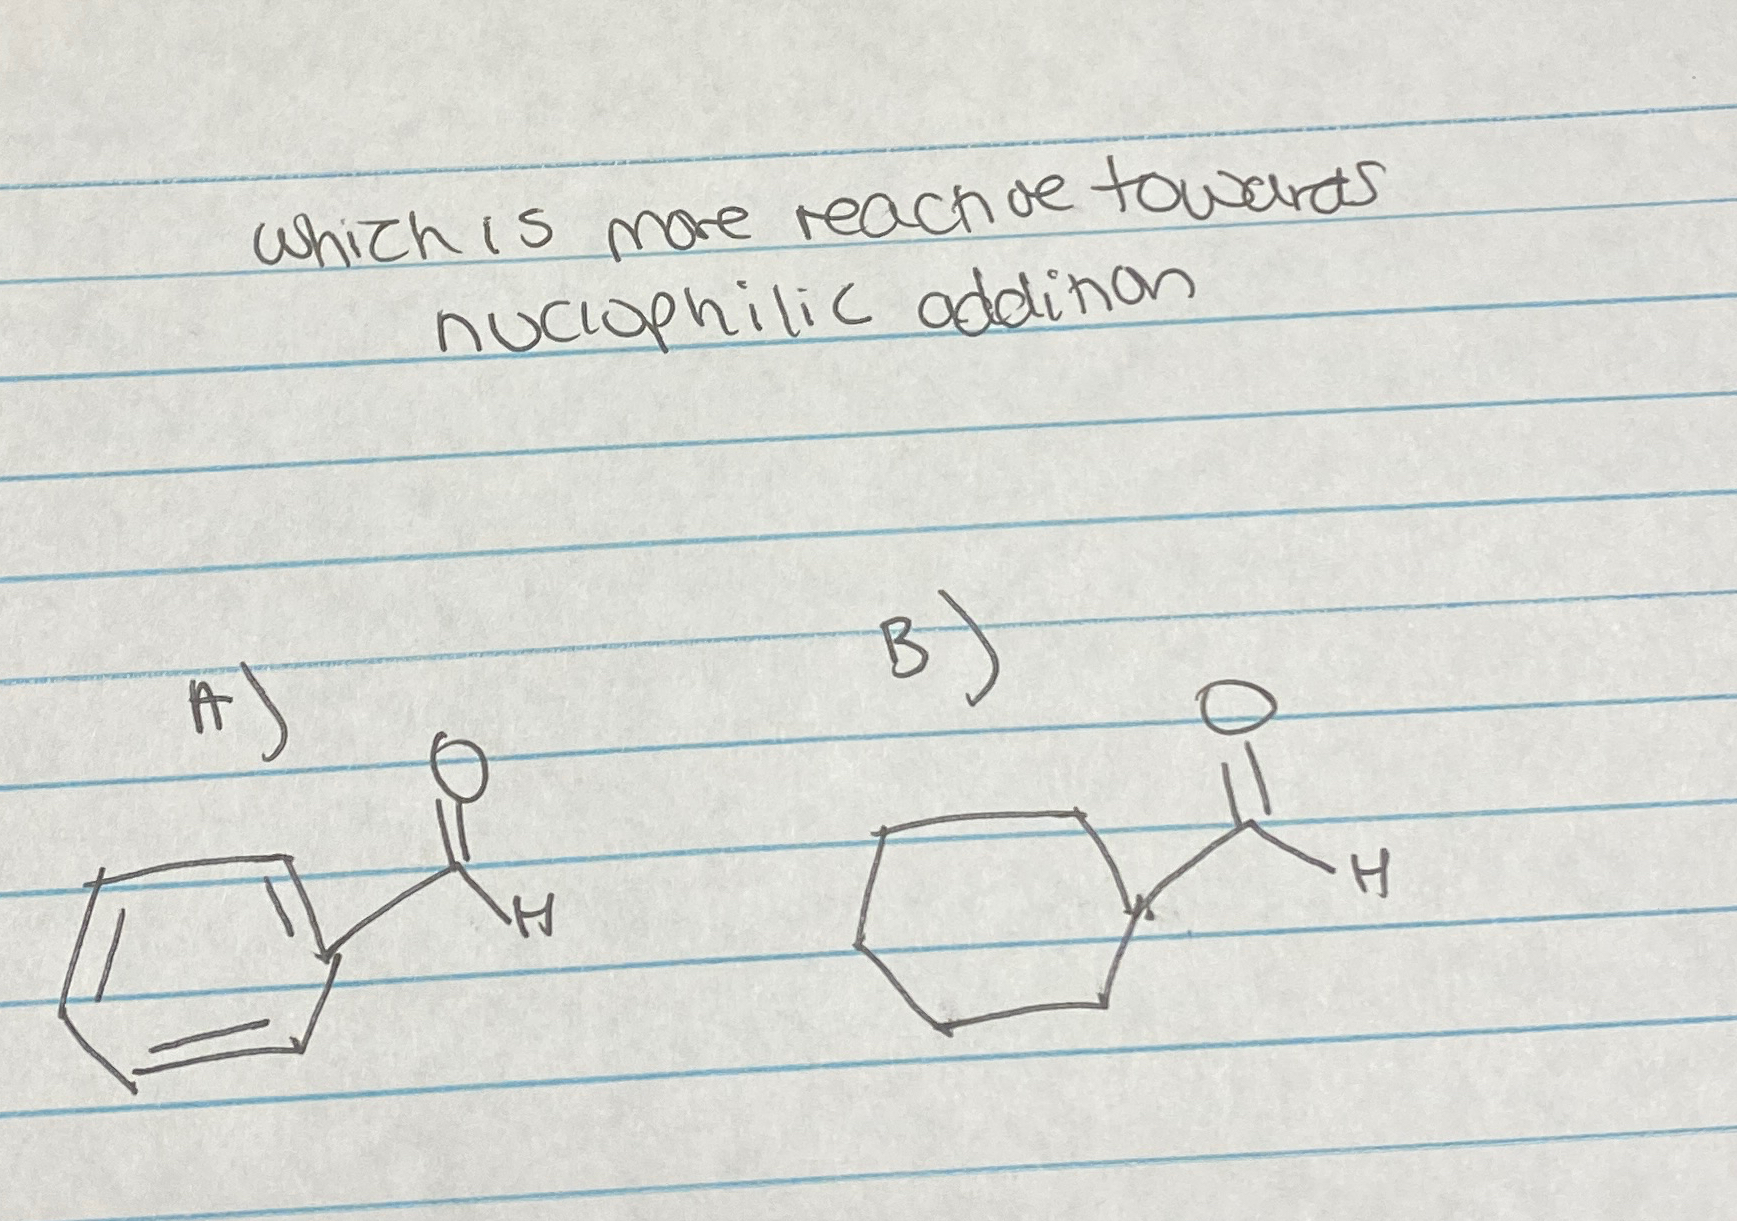 which is more reactive towards
nuclophilic addition
A)
B)
O
O
H
H